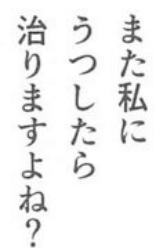 また私に
うつしたら
治りますよね？